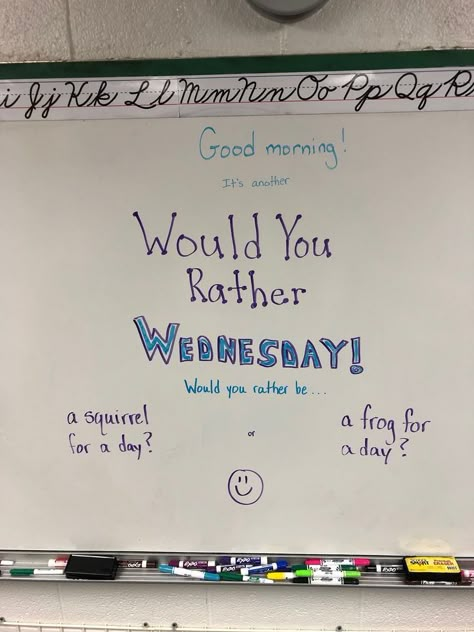 i Jj Kk Ll Mm Nn Oo Pp Qq R
Good morning!
It's another
Would You
Rather
WEDNESDAY!
Would you rather be...
a squirrel
for a day?
or
a frog for
a day?
EXPO
EXPO
EXPO